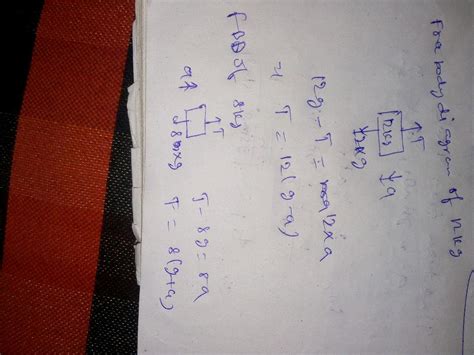 Free body diagram of 12kg
↑T
12kg ↓a
↓12xg
12g - T = 12xa
T = 12(g-a)
FBD of 8kg
a↑ ↑T
↓8xg
T - 8g = 8a
T = 8(g+a)